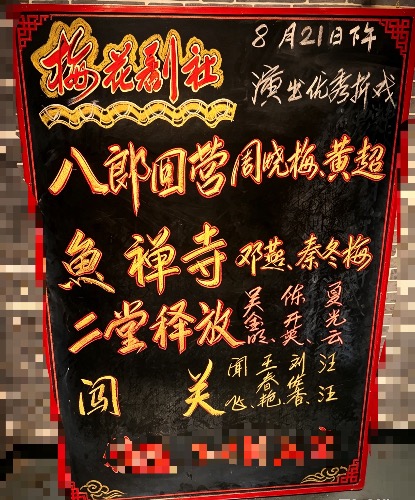 梅花剧社
8月21日下午
演出优秀折戏
八郎回营 周晓梅、黄超
魚禅寺 邓燕、秦冬梅
二堂释放 吴金皓、陈开英、夏光云
闯关 闻飞、王春艳、刘佳春、汪汪